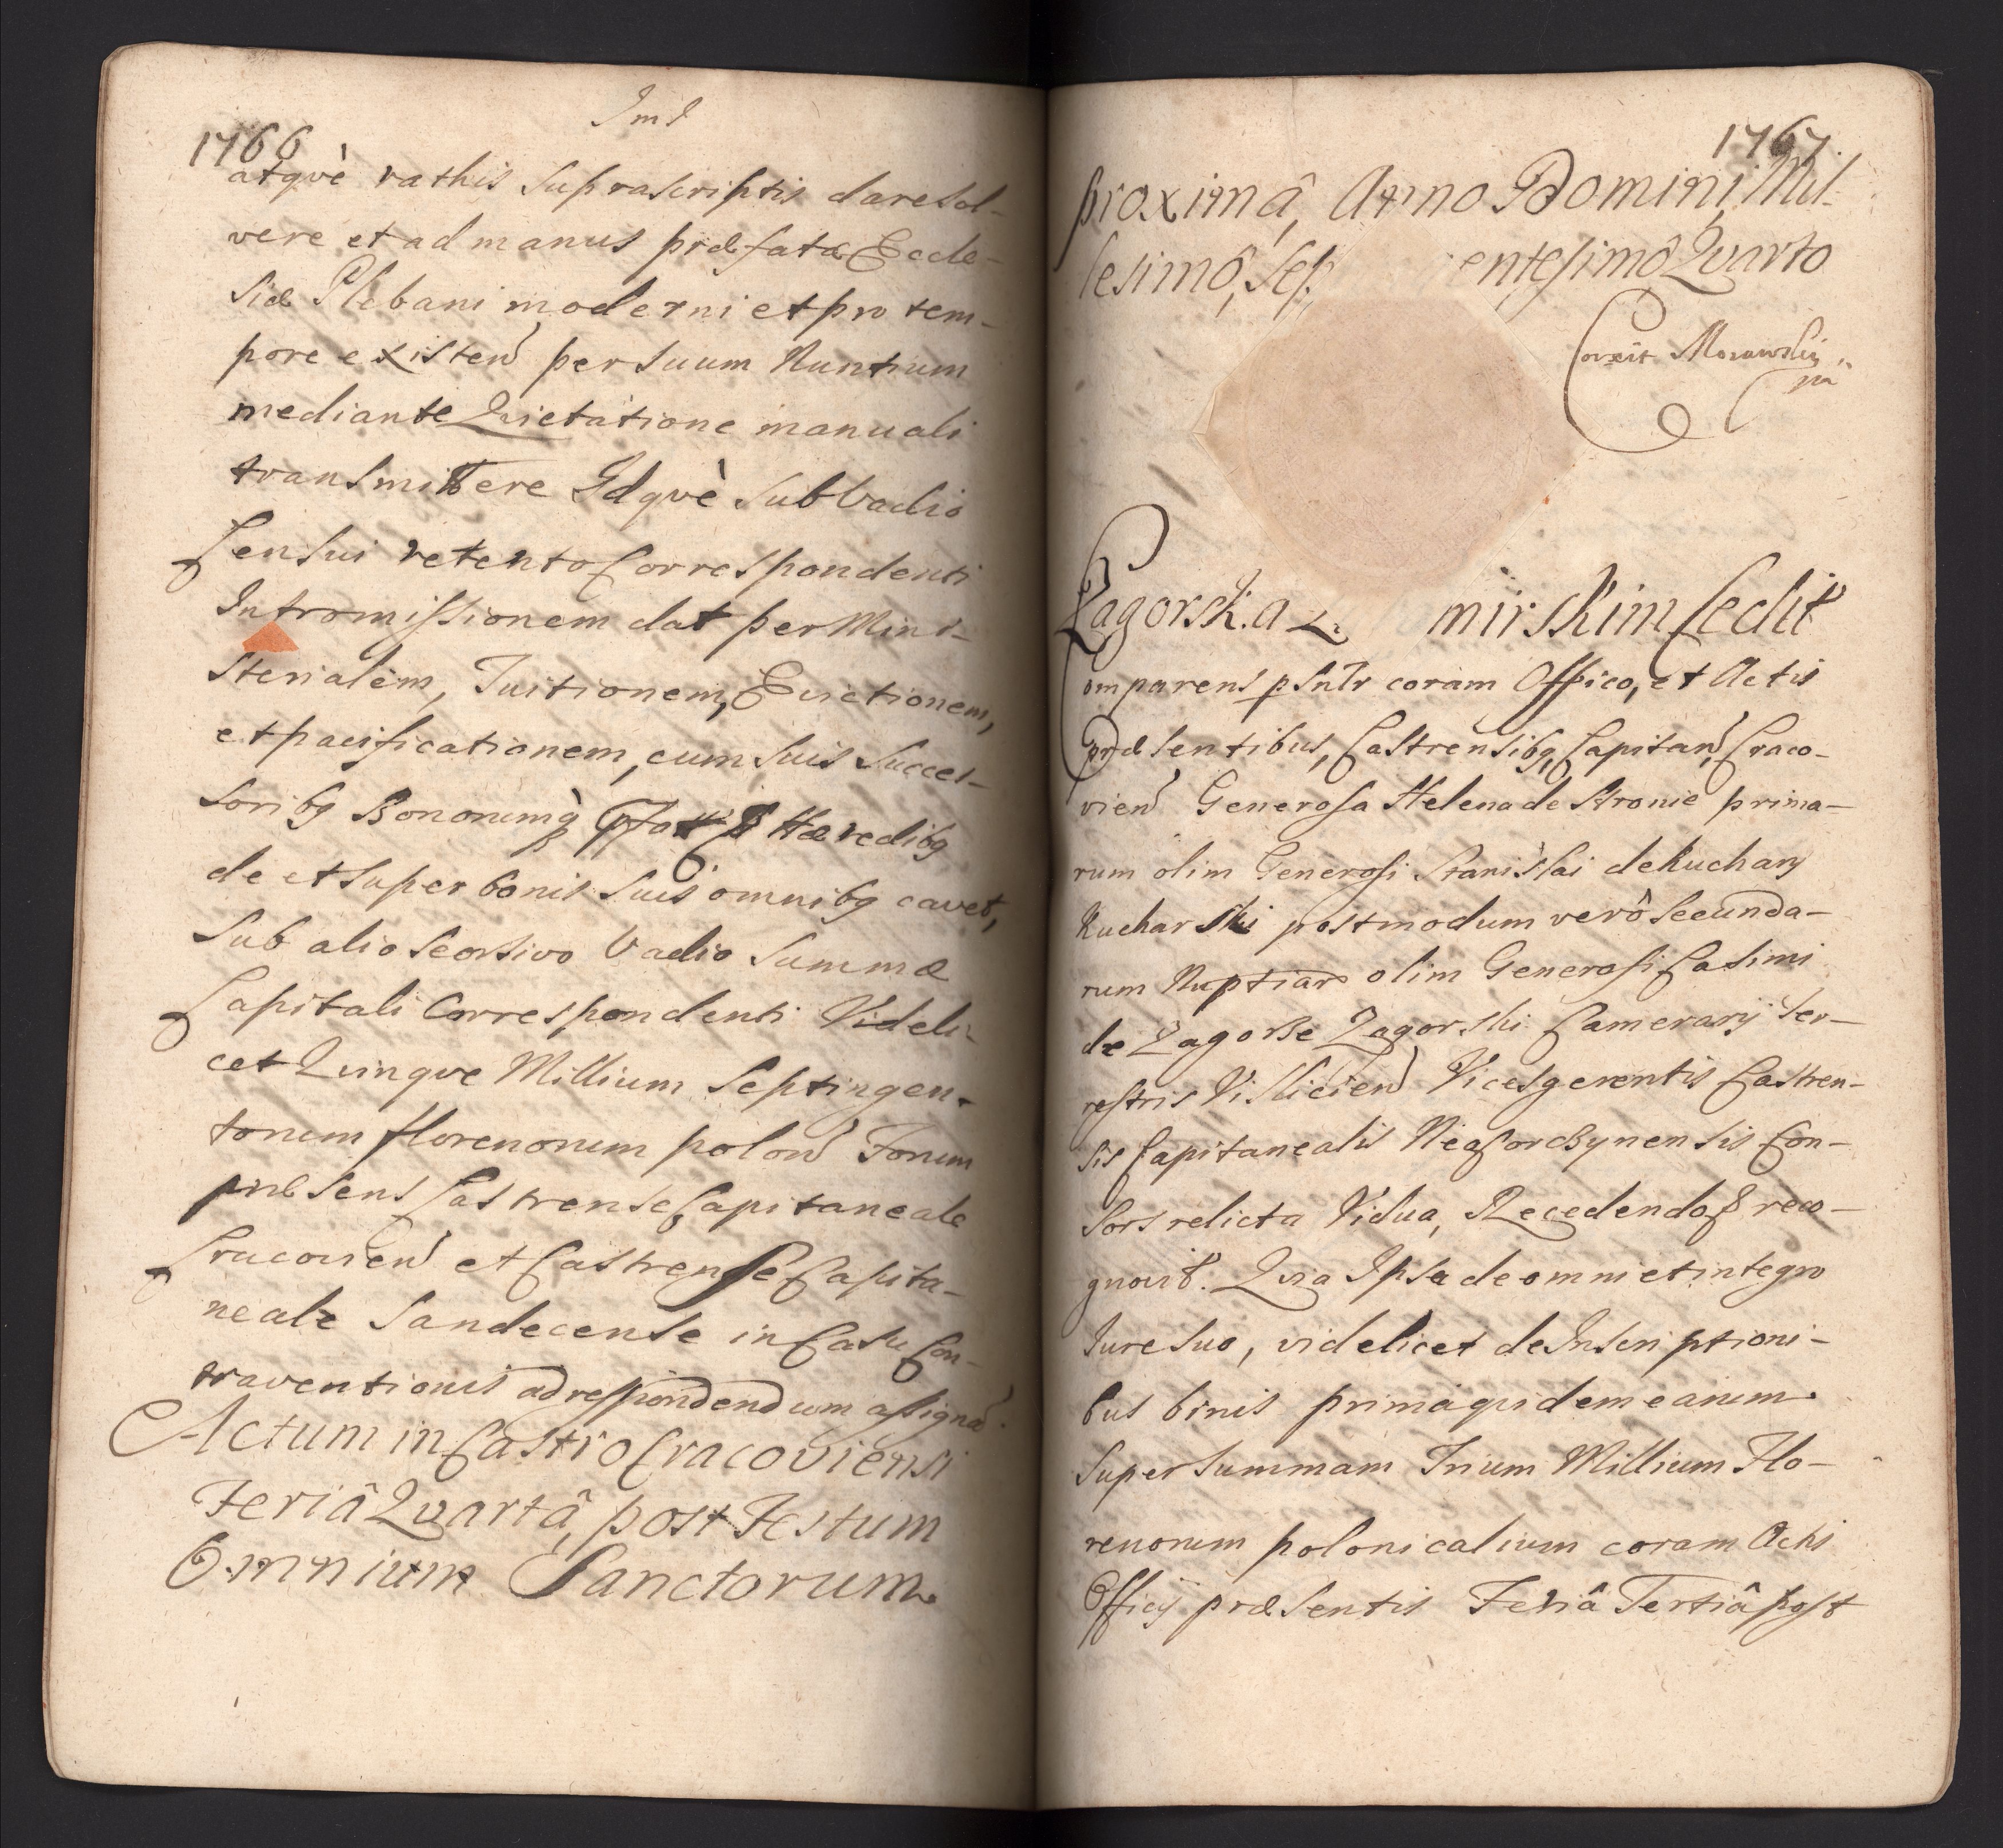 1766
atqvè rathis suprascriptis dare sol-
vere et ad manus præfatæ Eccle-
siæ Plebani moderni et pro tem-
pore existen per suum Nuntium
mediante Qvietatione manuali
transmittere Idqvè sub Vadio
Censui retento Correspondenti
Intromissionem dat per Mini-
sterialem, Tuitionem, Evictionem,
et pacificationem, cum suis Succes-
soribg Bonorumq Hæredibg
de et super bonis suis omnibg cavet,
sub alio seorsivo Vadio Summæ
Capitali Correspondenti Videli-
cet Qvinqve Millium Septingen-
torum florenorum polon Forum
præsens Castrense Capitaneale
Cracovien et Castrense Capita-
neale Sandecense in Casu Con-
traventionis ad respondendum assignā.
Actum in Castro Cracoviensi
Feriâ Qvartâ, post Festum
Omnium Sanctorum.
1767
proximâ, Anno Domini Mil-
lesimô, Sep entesimô Qvarto
Correxit Morawski
Zagorska mirskim Cedit
Comparens psntr coram Officio, et Actis
Præsentibus, Castrensibg, Capitan, Craco-
vien Generosa Helena de Stronie prima-
rum olim Generosi Stanislai de Kuchary
Kucharski postmodum verô secunda-
rum Nuptiar olim Generosi Casimi
de Zagorze Zagorski Camerarij Ter-
restris Vislicien Vicesgerentis Castren-
sis Capitanealis Neoforczynensis Con-
sors relicta Vidua, Recedendo & reco-
gnovit. Qvia Ipsa de omni et integro
Iure suo, videlicet de Inscriptioni-
bus binis prima qvidem earum
super summam Trium Millium Flo-
renorum polonicalium coram Actis
Officij præsentis Feriâ Tertiâ post